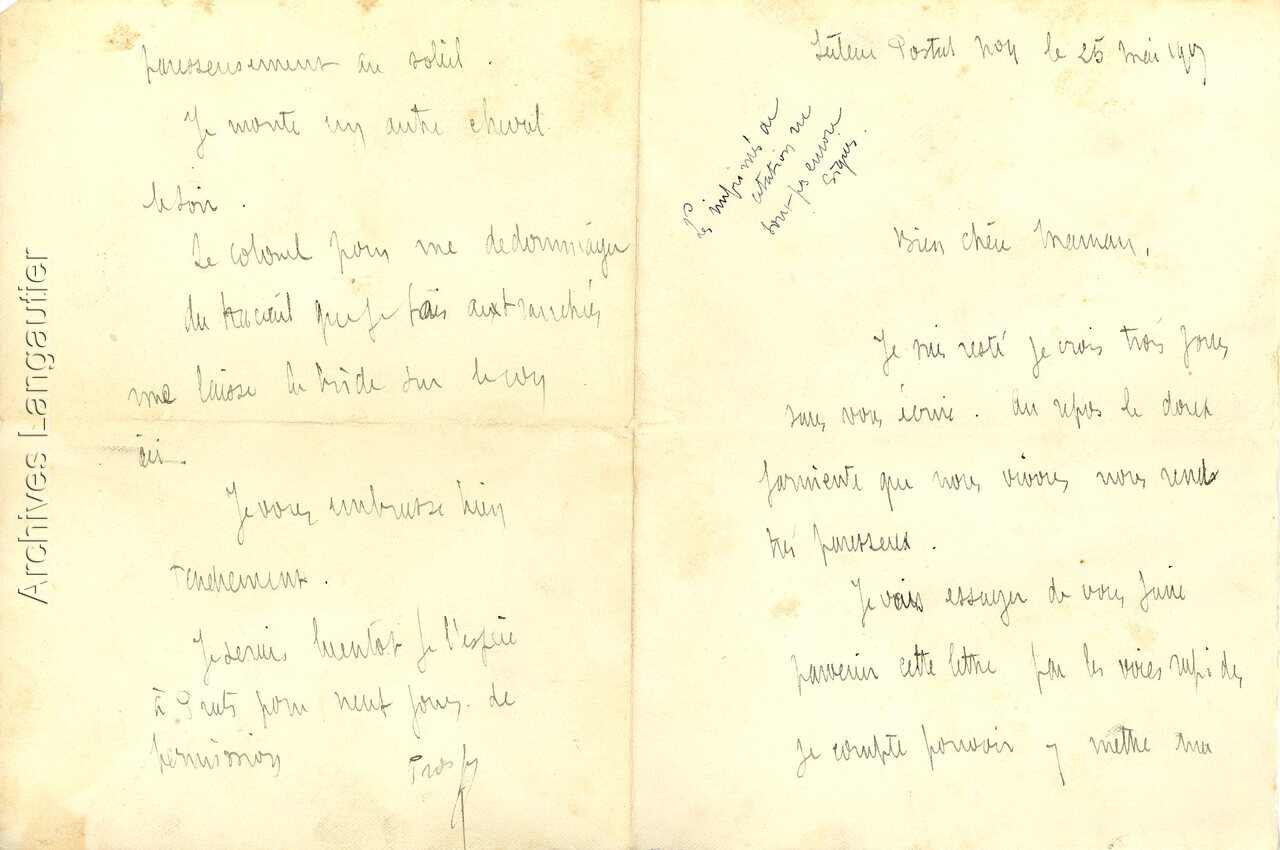 Secteur Postal n° 4 le 25 mai 1917
Les imprimés de
citation ne
sont pas encore
signés.
Bien chère Maman,
Je suis resté je crois trois jours
sans vous écrire. Au repos le doux
farniente que nous vivons nous rend
très paresseux.
Je vais essayer de vous faire
parvenir cette lettre par les voies rapides
Je compte pouvoir y mettre ma
paresseusement au soleil.
Je monte un autre cheval
le soir.
Le colonel pour me dedommager
du travail que je fais aux tranchées
me laisse la bride sur le cou
ici.
Je vous embrasse bien
tendrement.
Je serais bientot je l'espère
à Prats pour neuf jours de
permission
Archives Langautier